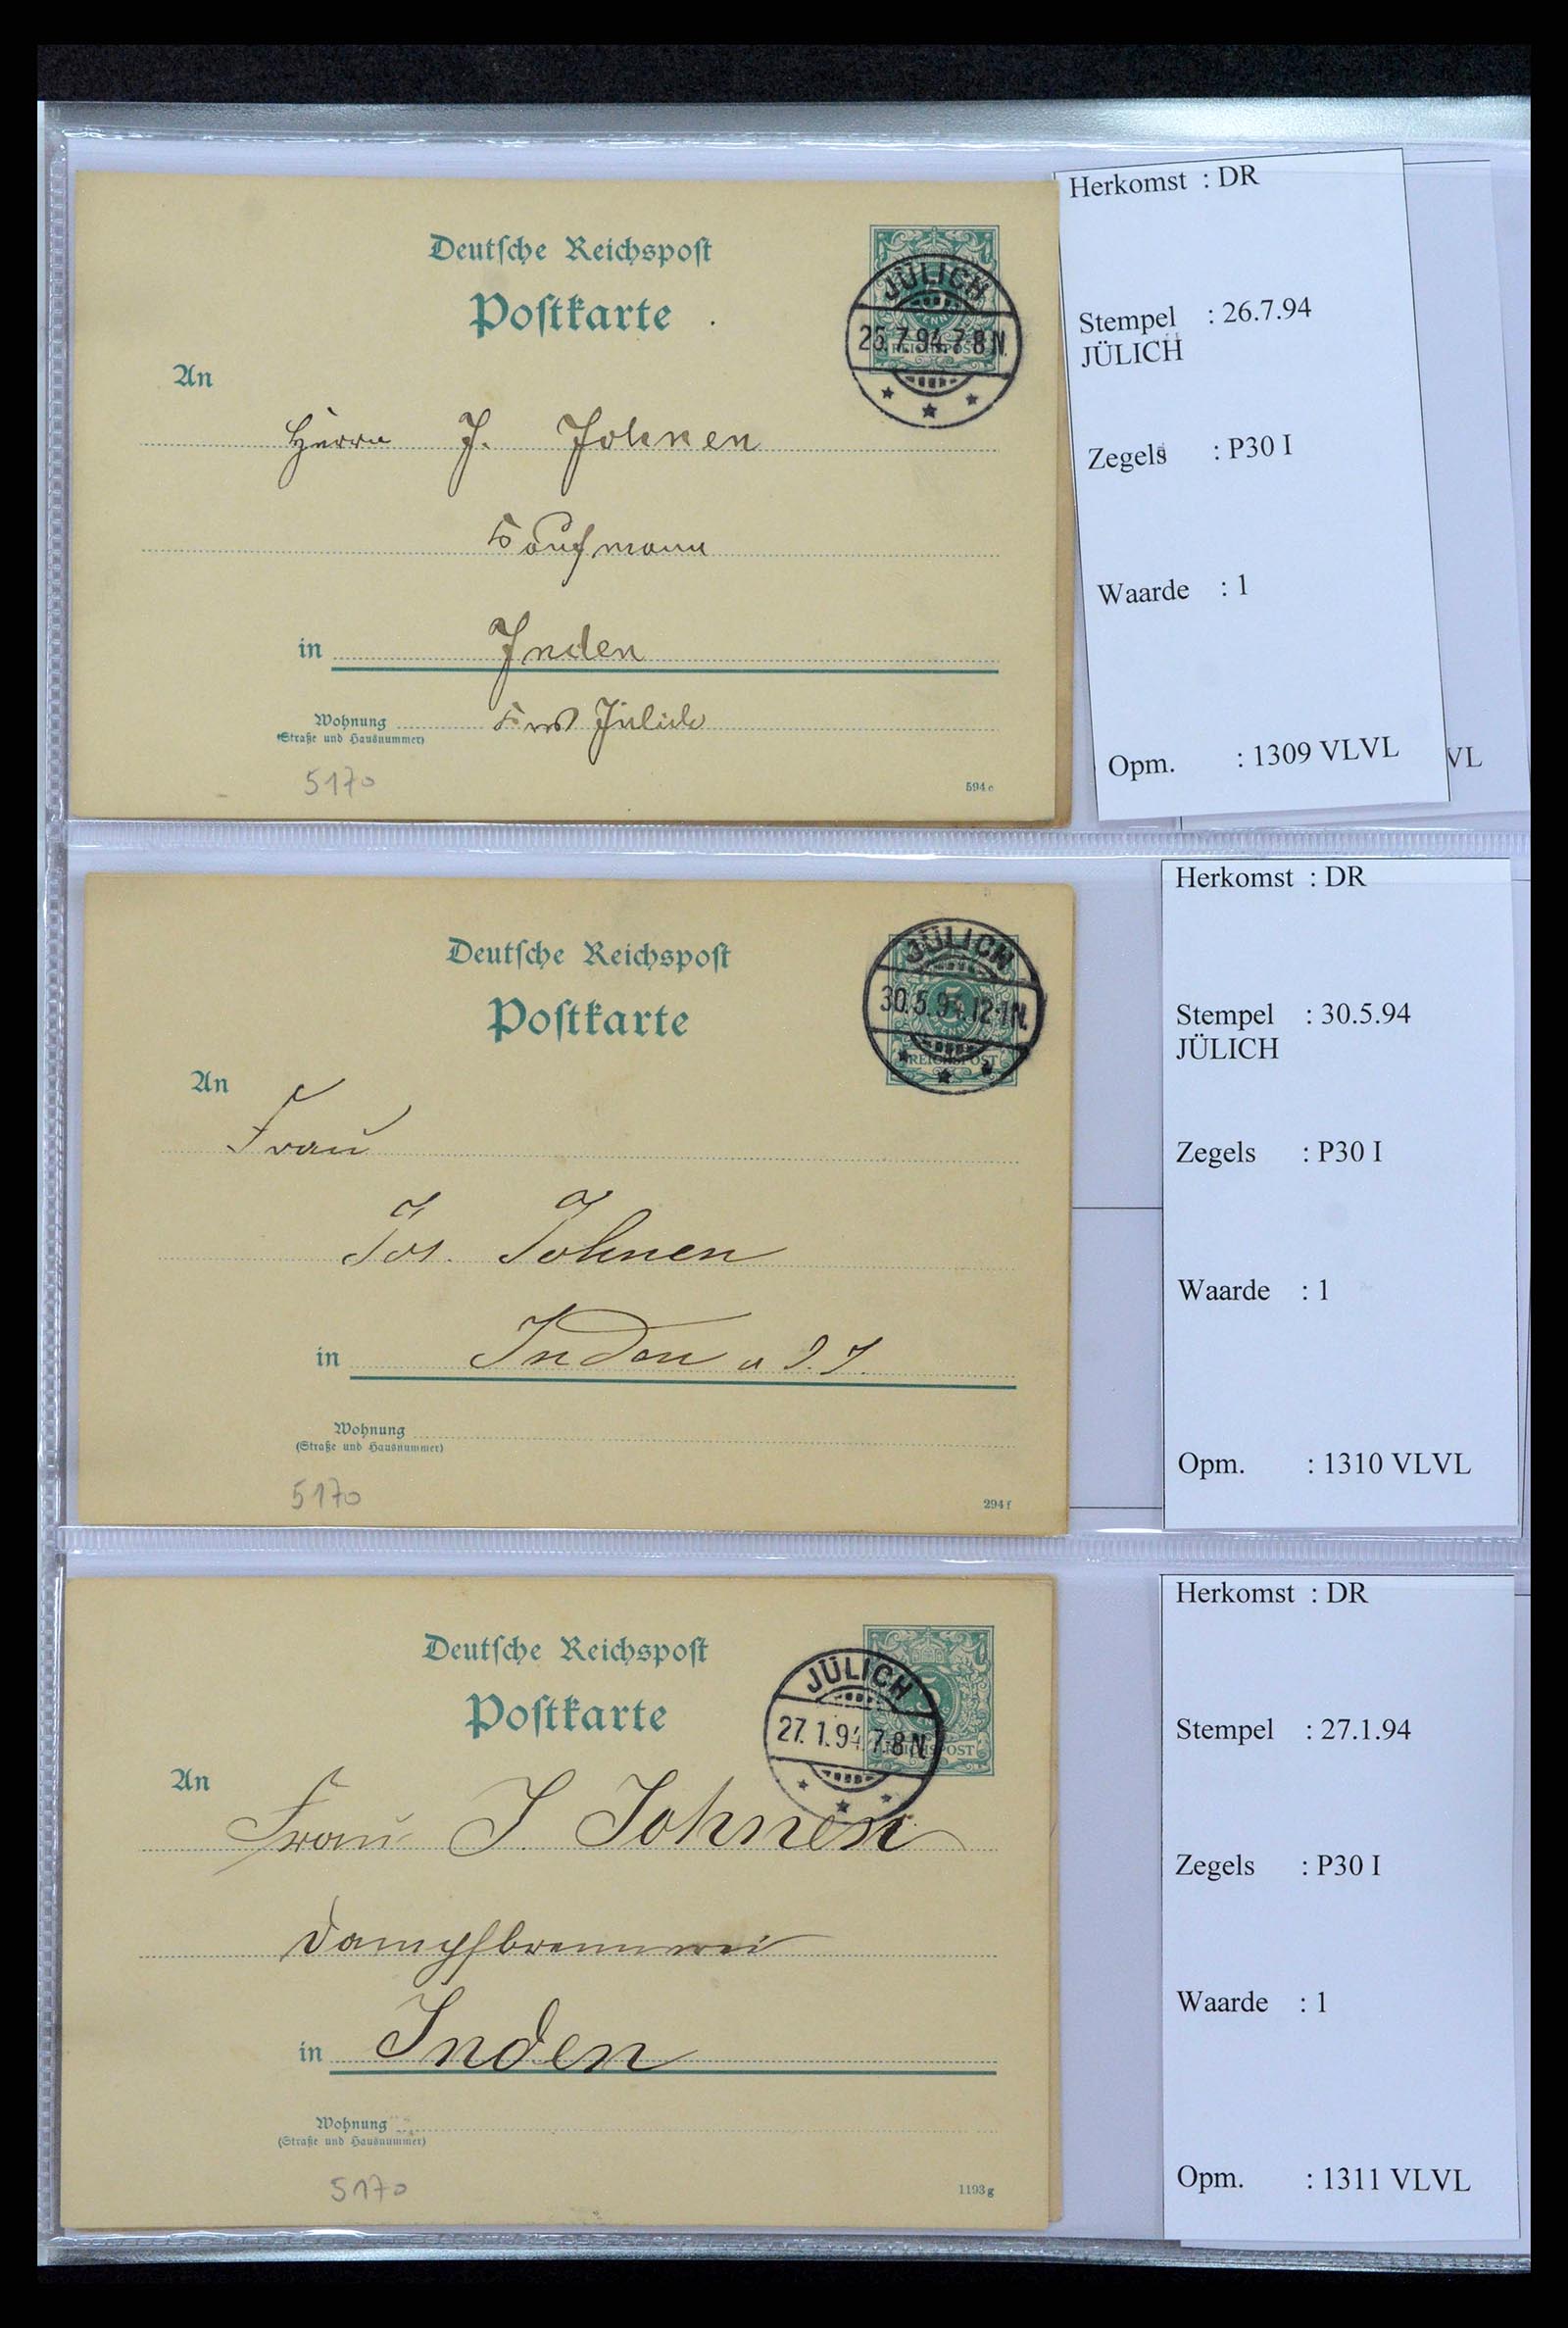 Deutsche Reichspost
Postkarte
JÜLICH
26.7.94.7-8N.
PFENNIG
REICHSPOST
An
Herrn J. Johnen
Kaufmann
in Inden
Krs Jülich
Wohnung
(Straße und Hausnummer)
5170
594 e
Herkomst : DR
Stempel : 26.7.94
JÜLICH
Zegels : P30 I
Waarde : 1
Opm. : 1309 VLVL
VL
Deutsche Reichspost
Postkarte
JÜLICH
5
30.5.94.12-1N.
REICHSPOST
An
Frau
Jos. Johnen
in Inden
Wohnung
(Straße und Hausnummer)
5170
294 f
Herkomst : DR
Stempel : 30.5.94
JÜLICH
Zegels : P30 I
Waarde : 1
Opm. : 1310 VLVL
Deutsche Reichspost
Postkarte
JÜLICH
5
27.1.94.7-8N.
REICHSPOST
An
Frau J Johnen
Dampfbrennerei
in Inden
Wohnung
(Straße und Hausnummer)
5170
1193 g
Herkomst : DR
Stempel : 27.1.94
Zegels : P30 I
Waarde : 1
Opm. : 1311 VLVL